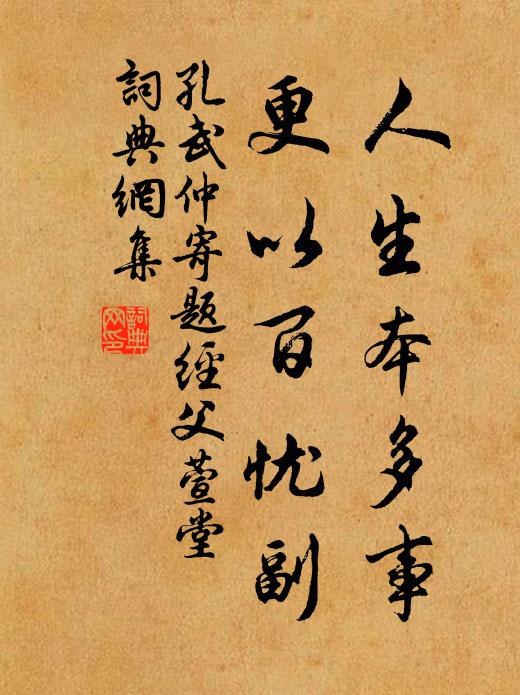 人生本多事
更以百忧副
孔武仲寄题經父萱堂
詞典網集
詞典网印